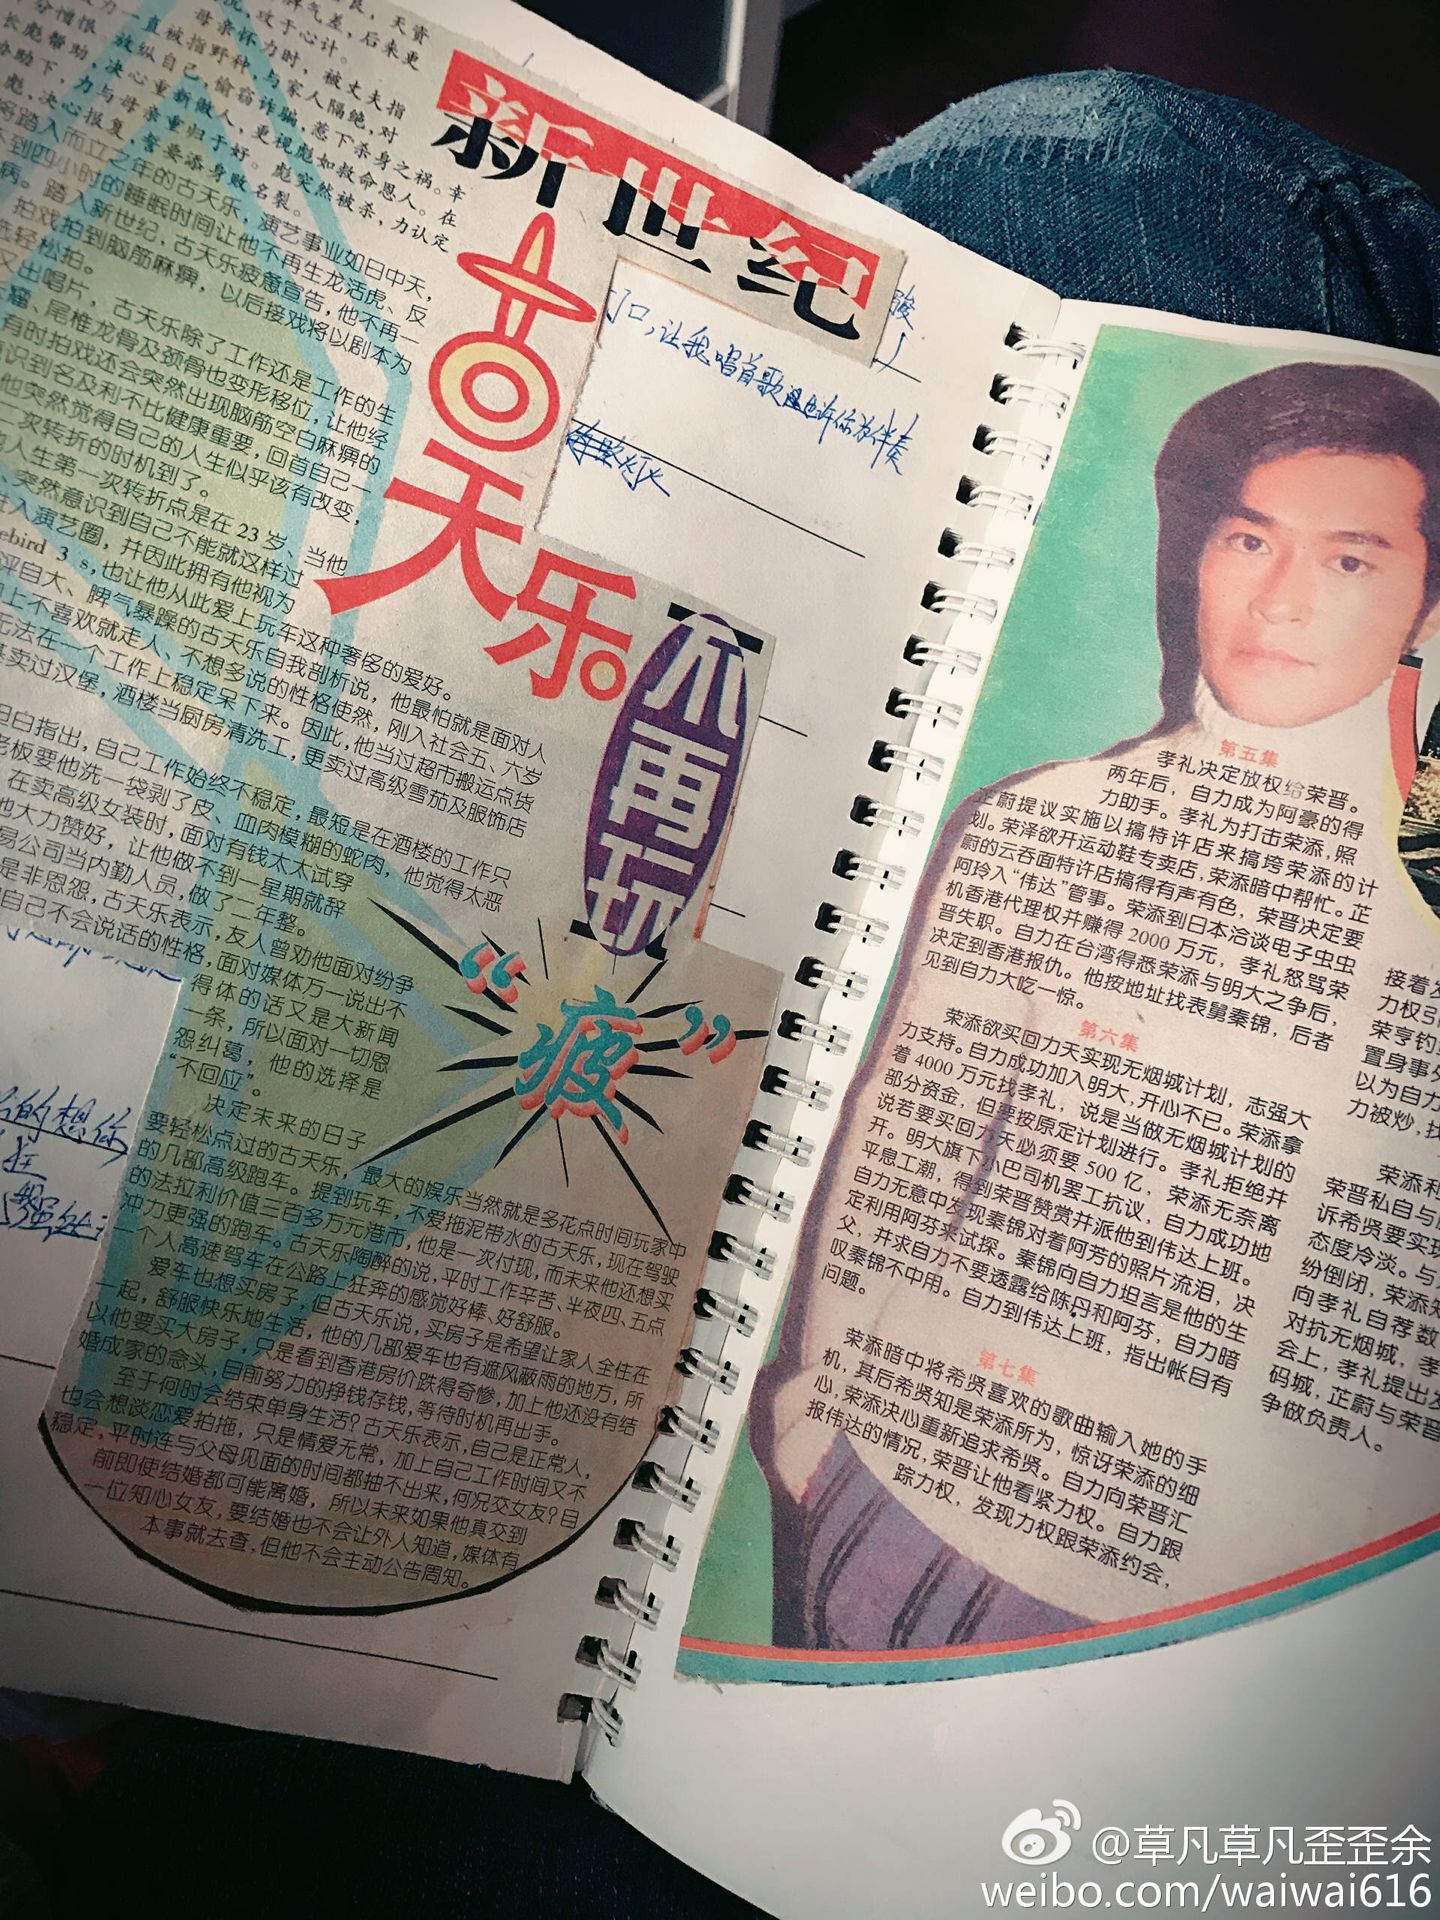 新世纪
古天乐。
不再玩
“疲”
母亲怀力时，被丈夫指
力一直被指野种，与家人隔绝，对
放纵自己，偷窃诈骗，惹下杀身之祸。幸
决心重新做人，重视彪如救命恩人。在
力与母亲重归于好。彪突然被杀，力认定
誓要添身败名裂。
将踏入而立之年的古天乐，演艺事业如日中天，
不到四小时的睡眠时间让他不再生龙活虎、反
病。踏入新世纪，古天乐疲惫宣告，他不再一
拍戏拍到脑筋麻痹，以后接戏将以剧本为
轻松拍。
又出唱片，古天乐除了工作还是工作的生
尾椎龙骨及颈骨也变形移位，让他经
有时拍戏还会突然出现脑筋空白麻痹的
识到名及利不比健康重要，回首自己一
他突然觉得自己的人生似乎该有改变，
一次转折的时机到了。
人生第一次转折点是在23岁、当他
突然意识到自己不能就这样过
进入演艺圈，并因此拥有他视为
ebird 3 s，也让他从此爱上玩车这种奢侈的爱好。
评自大、脾气暴躁的古天乐自我剖析说，他最怕就是面对人
上不喜欢就走人、不想多说的性格使然，刚入社会五、六岁
无法在一个工作上稳定呆下来。因此，他当过超市搬运点货
卖过汉堡，酒楼当厨房清洗工，更卖过高级雪茄及服饰店
坦白指出，自己工作始终不稳定，最短是在酒楼的工作只
老板要他洗一袋剥了皮、血肉模糊的蛇肉，他觉得太恶
在卖高级女装时，面对有钱太太试穿
他大力赞好，让他做不到一星期就辞
易公司当内勤人员，做了二年整。
是非恩怨，古天乐表示，友人曾劝他面对纷争
自己不会说话的性格，面对媒体万一说出不
得体的话又是大新闻
一条，所以面对一切恩
怨纠葛，他的选择是
“不回应”。
决定未来的日子
要轻松点过的古天乐，最大的娱乐当然就是多花点时间玩家中
的几部高级跑车。提到玩车，不爱拖泥带水的古天乐，现在驾驶
的法拉利价值三百多万元港币，他是一次付现，而未来他还想买
冲力更强的跑车。古天乐陶醉的说，平时工作辛苦、半夜四、五点
个人高速驾车在公路上狂奔的感觉好棒、好舒服。
爱车也想买房子，但古天乐说，买房子是希望让家人全住在
一起，舒服快乐地生活，他的几部爱车也有遮风蔽雨的地方，所
以他要买大房子，只是看到香港房价跌得奇惨，加上他还没有结
婚成家的念头，目前努力的挣钱存钱，等待时机再出手。
至于何时会结束单身生活？古天乐表示，自己是正常人，
也会想谈恋爱拍拖，只是情爱无常，加上自己工作时间又不
稳定，平时连与父母见面的时间都抽不出来，何况交女友？目
前即使结婚都可能离婚，所以未来如果他真交到
一位知心女友，要结婚也不会让外人知道，媒体有
本事就去查，但他不会主动公告周知。
第五集
孝礼决定放权给荣晋。
两年后，自力成为阿豪的得
力助手。孝礼为打击荣添，照
芷蔚提议实施以搞特许店来搞垮荣添的计
划。荣泽欲开运动鞋专卖店，荣添暗中帮忙。芷
蔚的云吞面特许店搞得有声有色，荣晋决定要
阿玲入“伟达”管事。荣添到日本洽谈电子虫虫
机香港代理权并赚得2000万元，孝礼怒骂荣
晋失职。自力在台湾得悉荣添与明大之争后，
决定到香港报仇。他按地址找表舅秦锦，后者
见到自力大吃一惊。
第六集
荣添欲买回力天实现无烟城计划，志强大
力支持。自力成功加入明大，开心不已。荣添拿
着4000万元找孝礼，说是当做无烟城计划的
部分资金，但要按原定计划进行。孝礼拒绝并
说若要买回力天必须要500亿，荣添无奈离
开。明大旗下小巴司机罢工抗议，自力成功地
平息工潮，得到荣晋赞赏并派他到伟达上班。
自力无意中发现秦锦对着阿芳的照片流泪，决
定利用阿芬来试探。秦锦向自力坦言是他的生
父，并求自力不要透露给陈丹和阿芬，自力暗
叹秦锦不中用。自力到伟达上班，指出帐目有
问题。
第七集
荣添暗中将希贤喜欢的歌曲输入她的手
机，其后希贤知是荣添所为，惊讶荣添的细
心，荣添决心重新追求希贤。自力向荣晋汇
报伟达的情况，荣晋让他看紧力权。自力跟
踪力权，发现力权跟荣添约会，
接着发
力权引
荣亨钓
置身事外
以为自力
力被炒，找
荣添利
荣晋私自与
诉希贤要实现
态度冷淡。与
纷倒闭，荣添知
向孝礼自荐数
对抗无烟城，孝
会上，孝礼提出发
码城，芷蔚与荣晋
争做负责人。
@草凡草凡歪歪余
weibo.com/waiwai616